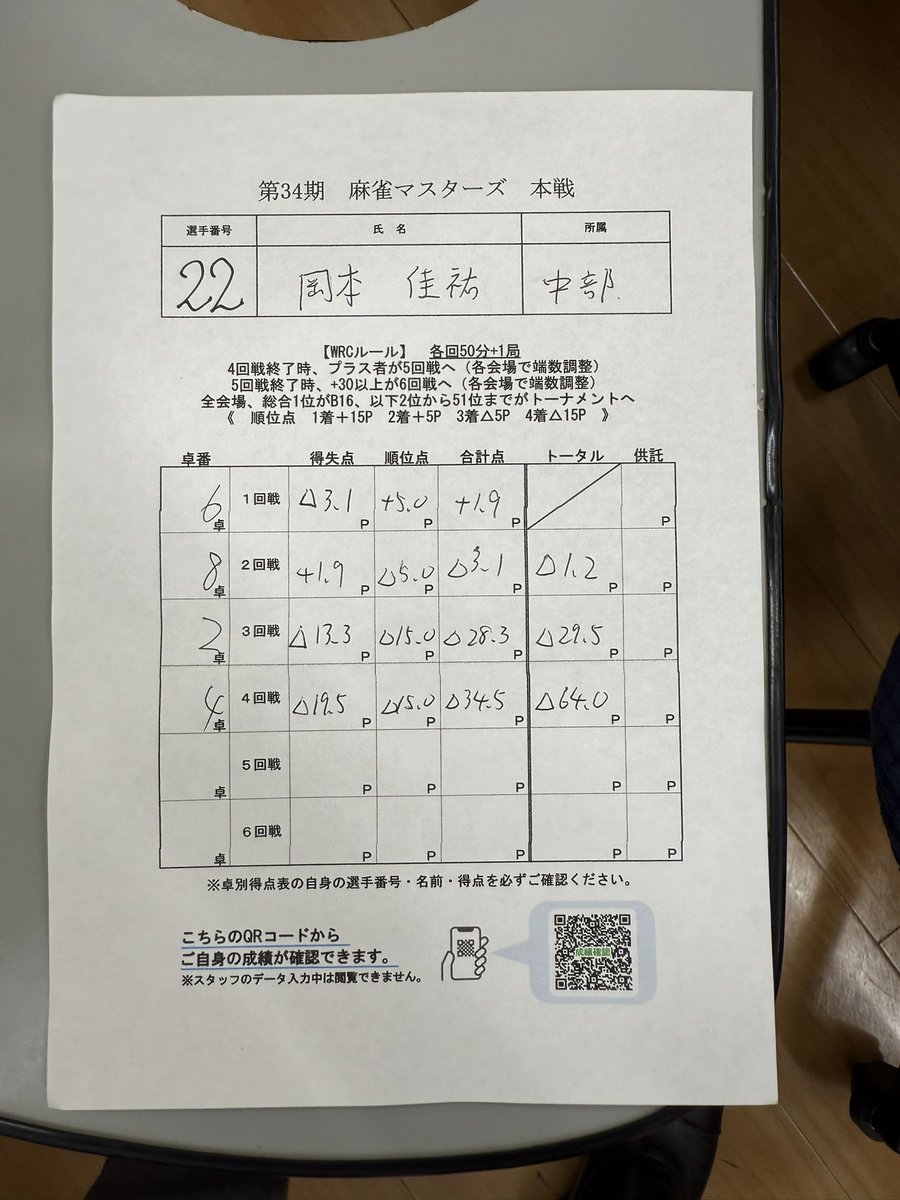 第34期 麻雀マスターズ 本戦
選手番号 氏 名 所属
22 岡本 佳祐 中部
【WRCルール】 各回50分+1局
4回戦終了時、プラス者が5回戦へ（各会場で端数調整）
5回戦終了時、+30以上が6回戦へ（各会場で端数調整）
全会場、総合1位がB16、以下2位から51位までがトーナメントへ
《 順位点 1着＋15P 2着＋5P 3着△5P 4着△15P 》
卓番 得失点 順位点 合計点 トータル 供託
6卓 1回戦 △3.1P +5.0P +1.9P P
8卓 2回戦 +1.9P △5.0P △3.1P △1.2P P
2卓 3回戦 △13.3P △15.0P △28.3P △29.5P P
4卓 4回戦 △19.5P △15.0P △34.5P △64.0P P
卓 5回戦 P P P P P
卓 6回戦 P P P P P
※卓別得点表の自身の選手番号・名前・得点を必ずご確認ください。
こちらのQRコードから
ご自身の成績が確認できます。
※スタッフのデータ入力中は閲覧できません。
成績確認